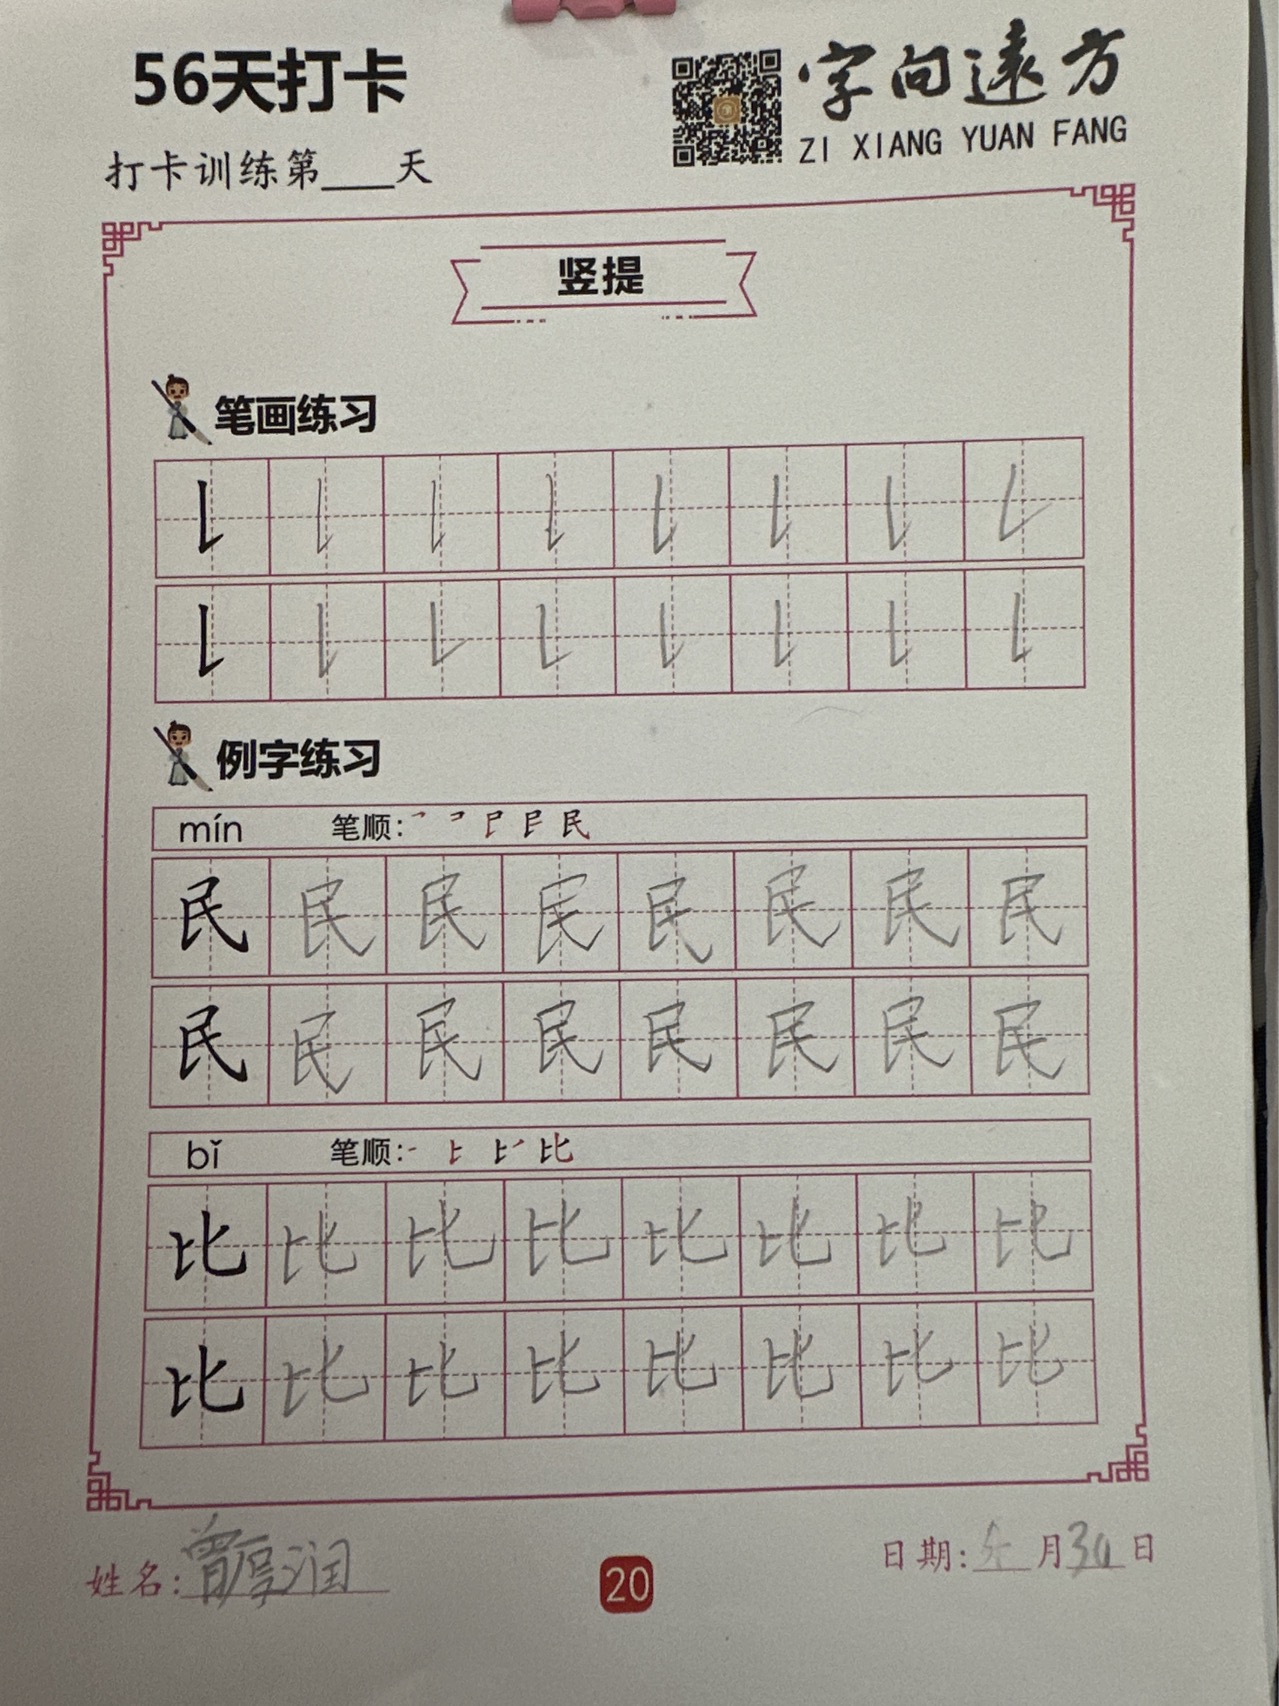 56天打卡
字向遠方
ZI XIANG YUAN FANG
打卡训练第____天
竖提
笔画练习
例字练习
mín 笔顺: 民
民 民 民 民 民 民 民 民
民 民 民 民 民 民 民 民
bǐ 笔顺: 比
比 比 比 比 比 比 比 比
比 比 比 比 比 比 比 比
姓名: 曾厚润
20
日期: 月30日